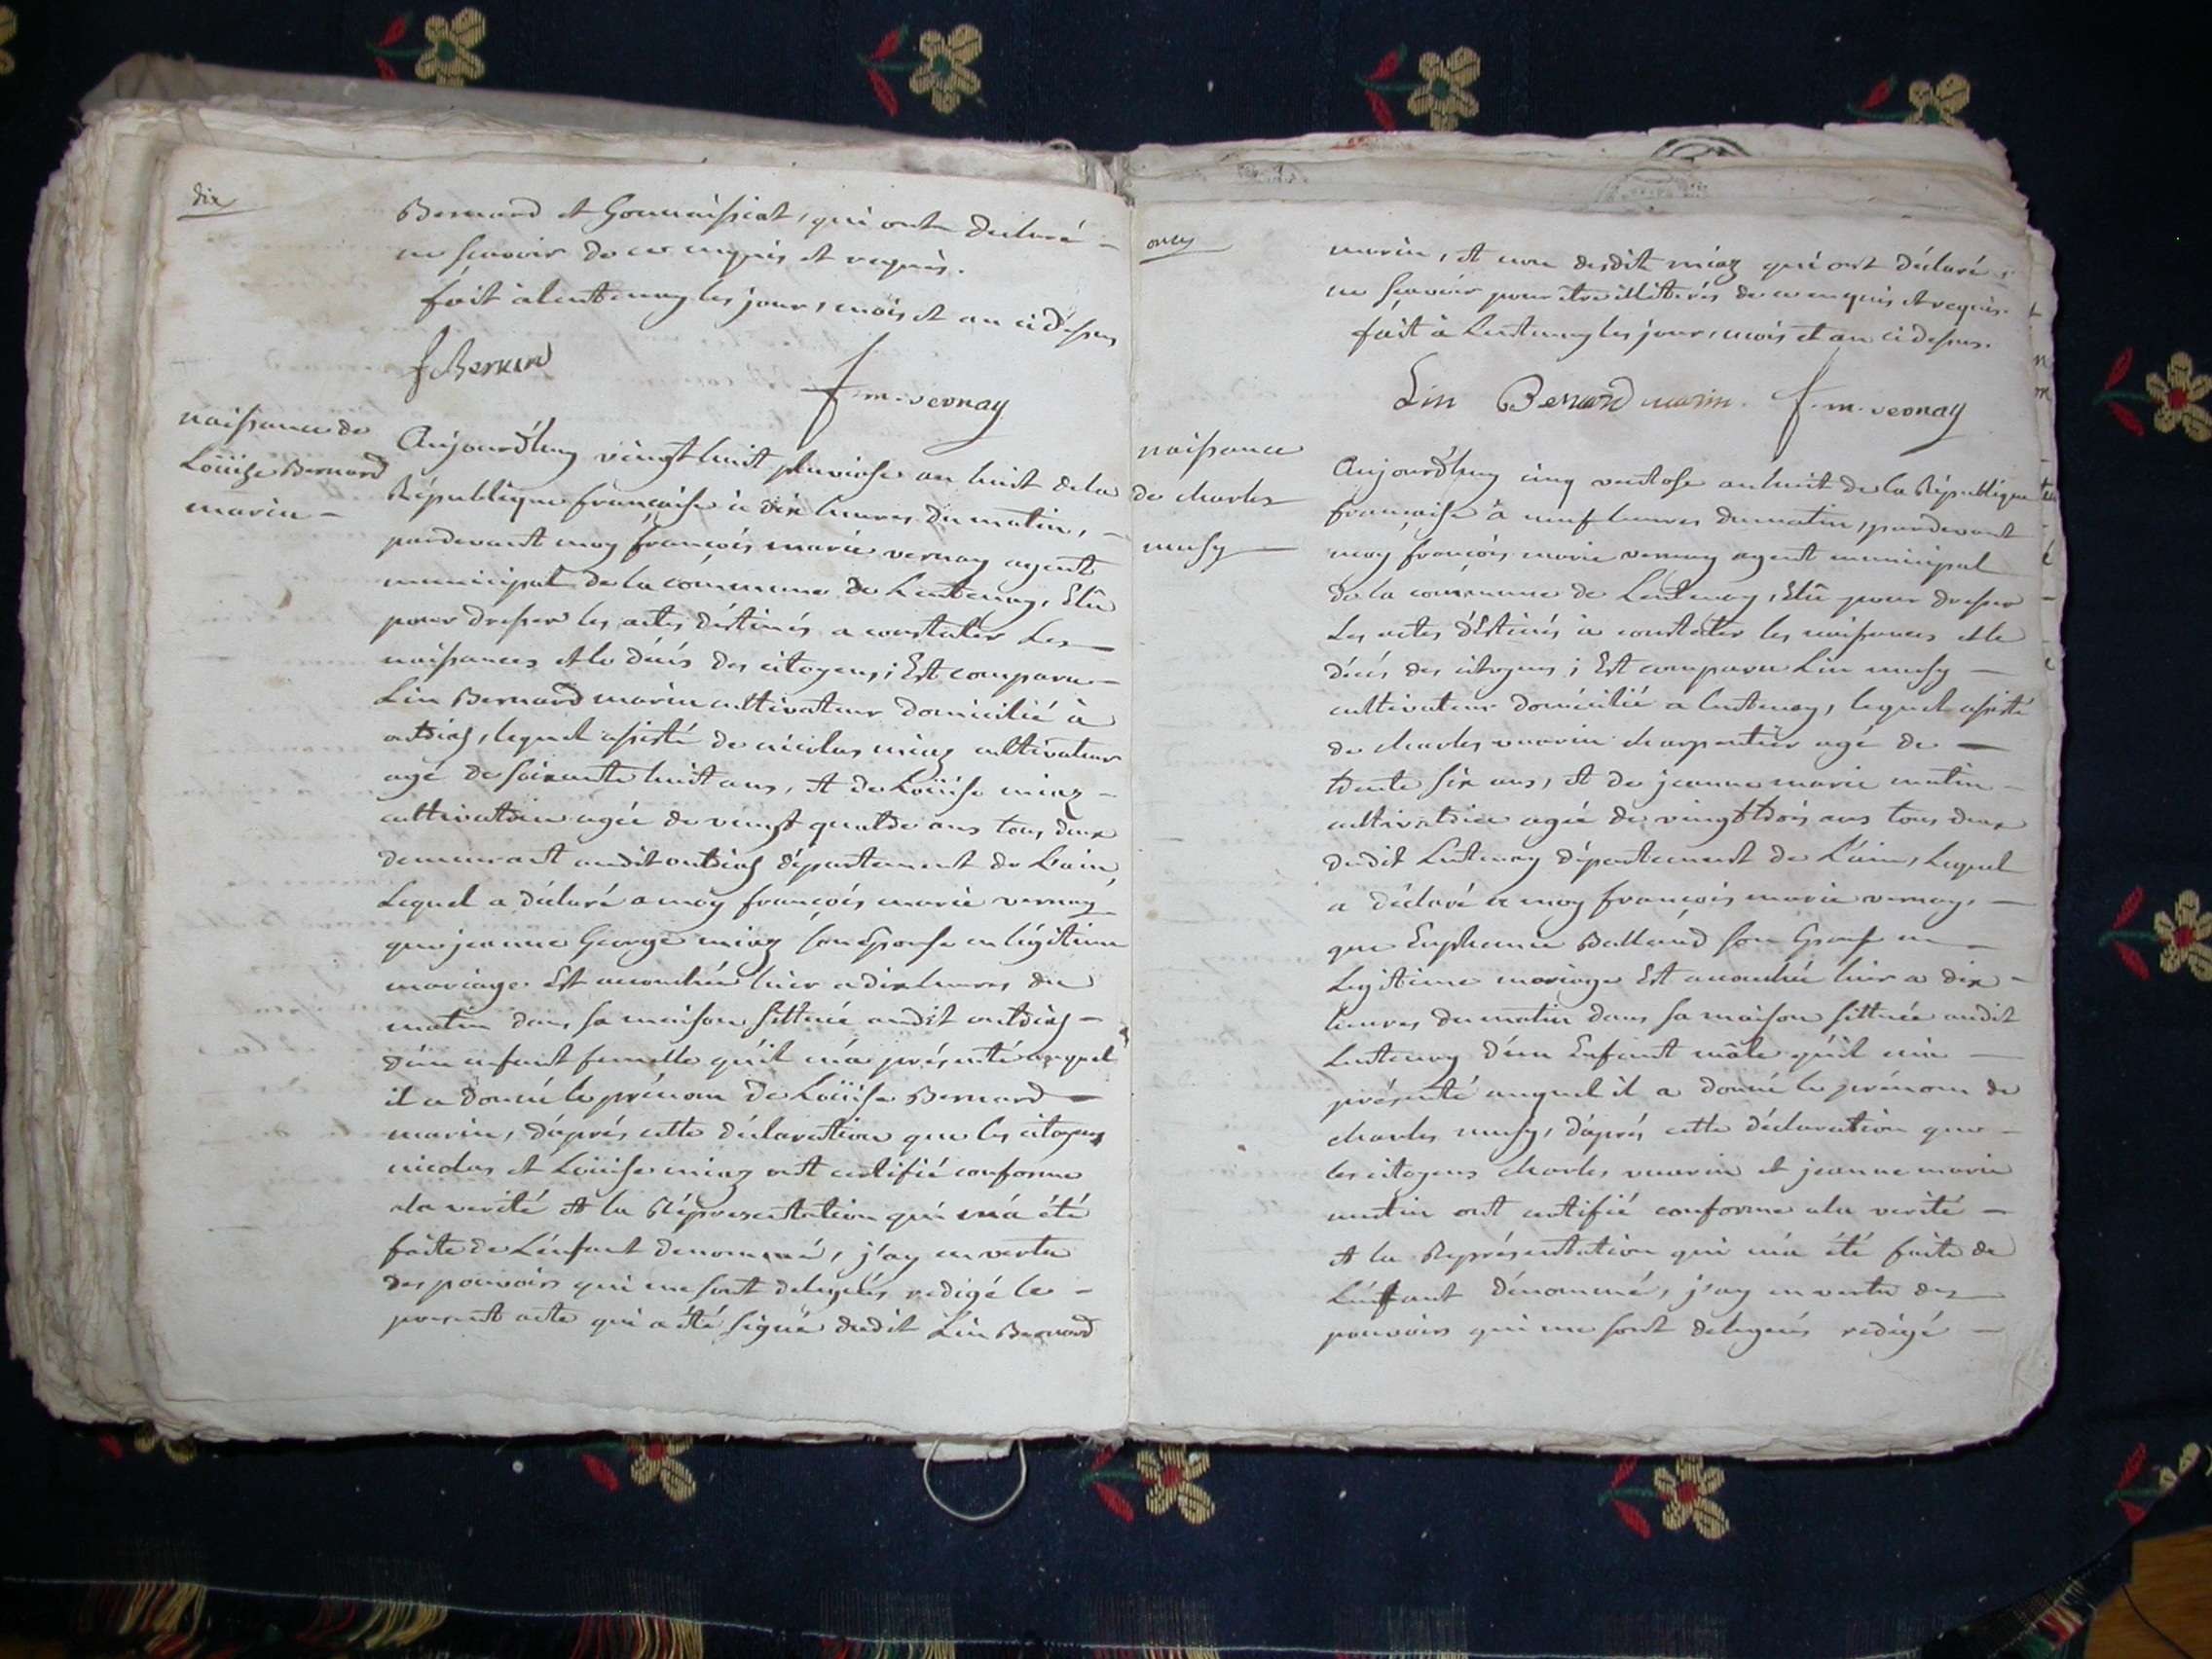 dix
Bernard et Gonnaissiat, qui ont declaré -
ne scavoir de ce enquis et requis.
fait a lentenay les jour, mois et an ci dessus
f Bernard
f. m. vernay
naissance de
Loüise Bernard
marin -
Aujourd'huy vingt huit pluviose an huit de la
République francaise à dix heures du matin, -
pardevant moy françois marie vernay agent
municipal de la commune de Lentenay, Elû
pour dresser les actes déstinés a constater Les -
naissances et le décés des citoyens; Est comparu -
Lin Bernard marin cultivateur domicilié à
outriaz, lequel assisté de nicolas miaz cultivateur
agé de soixante huit ans, et de Loüise miaz -
cultivatrice agée de vingt quatre ans tous deux
demeurant audit outriaz département de L'ain,
Lequel a déclaré a moy françois marie vernay
que jeanne George miaz son Epouse en légitime
mariage Est accouchée hier a dix heures du
matin dans sa maison sittuée audit outriaz -
d'un enfant femelle qu'il m'a présenté auquel
il a donné le prénom de Loüise Bernard -
marin, d'aprés cette déclaration que les citoyens
nicolas et Loüise miaz ont certifié conforme
a la verité et la Répresentation qui m'a été
faite de L'enfant denommé, j'ay en vertu
des pouvoirs qui me sont delegués redigé le -
present acte qui a été signé dudit Lin Bernard
onze
marin, et non desdits miaz qui ont déclaré
ne scavoir pour être illiterés de ce enquis et requis.
fait à Lentenay les jour, mois et an ci dessus.
Lin Bernard marin. f. m. vernay
naissance
de charles
musy -
Aujourd'huy cinq ventose an huit de la République
francaise à neuf heures du matin, pardevant
moy françois marie vernay agent municipal
de la commune de Lentenay, Elû pour dresser
Les actes déstinés à constater les naissances et le
décés des citoyens; Est comparu Lin musy -
cultivateur domicilié a lentenay, lequel assisté
de charles vuarin charpentier agé de -
trente six ans, et de jeanne marie mutin -
cultivatrice agée de vingt trois ans tous deux
dudit Lentenay département de L'ain, Lequel
a déclaré a moy françois marie vernay, -
que Euphemie Balland son Epouse en -
Legitime mariage Est accouchée hier a dix -
heures du matin dans sa maison sittuée audit
Lentenay d'un Enfant mâle qu'il m'a -
présenté auquel il a donné le prénom de
charles musy, d'aprés cette déclaration que -
les citoyens charles vuarin et jeanne marie
mutin ont certifié conforme a la verité -
et la Représentation qui m'a été faite de
L'enfant dénommé, j'ay en vertu des -
pouvoirs qui me sont delegués redigé -